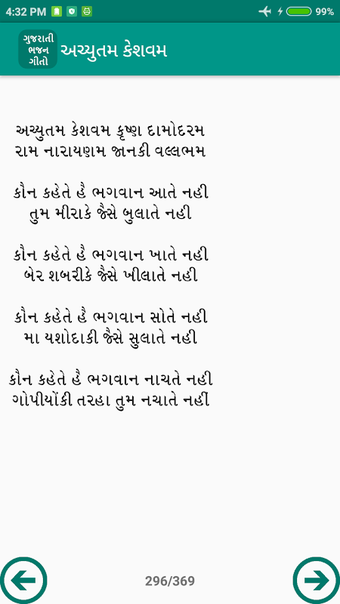 4:32 PM
99%
ગુજરાતી
ભજન
ગીતો
અચ્યુતમ કેશવમ
અચ્યુતમ કેશવમ કૃષ્ણ દામોદરમ
રામ નારાયણમ જાનકી વલ્લભમ
કૌન કહેતે હૈ ભગવાન આતે નહી
તુમ મીરાકે જૈસે બુલાતે નહી
કૌન કહેતે હૈ ભગવાન ખાતે નહી
બેર શબરીકે જૈસે ખીલાતે નહી
કૌન કહેતે હૈ ભગવાન સોતે નહી
મા યશોદાકી જૈસે સુલાતે નહી
કૌન કહેતે હૈ ભગવાન નાચતે નહી
ગોપીયોંકી તરહા તુમ નચાતે નહીં
296/369